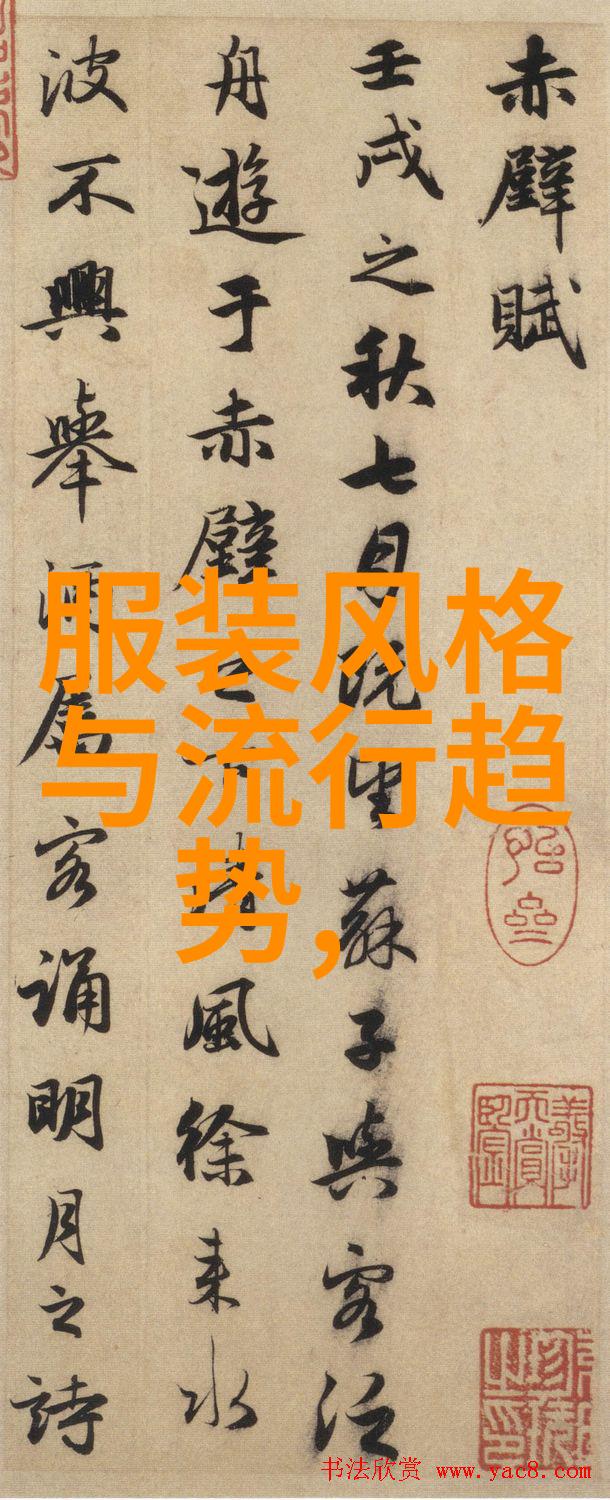 赤壁賦
壬戌之秋七月既望蘇子與客泛
舟遊于赤壁之下清風徐来水
波不興舉酒属客誦明月之詩
服装风格
与流行趋
势,
书法欣赏 www.yac8.com